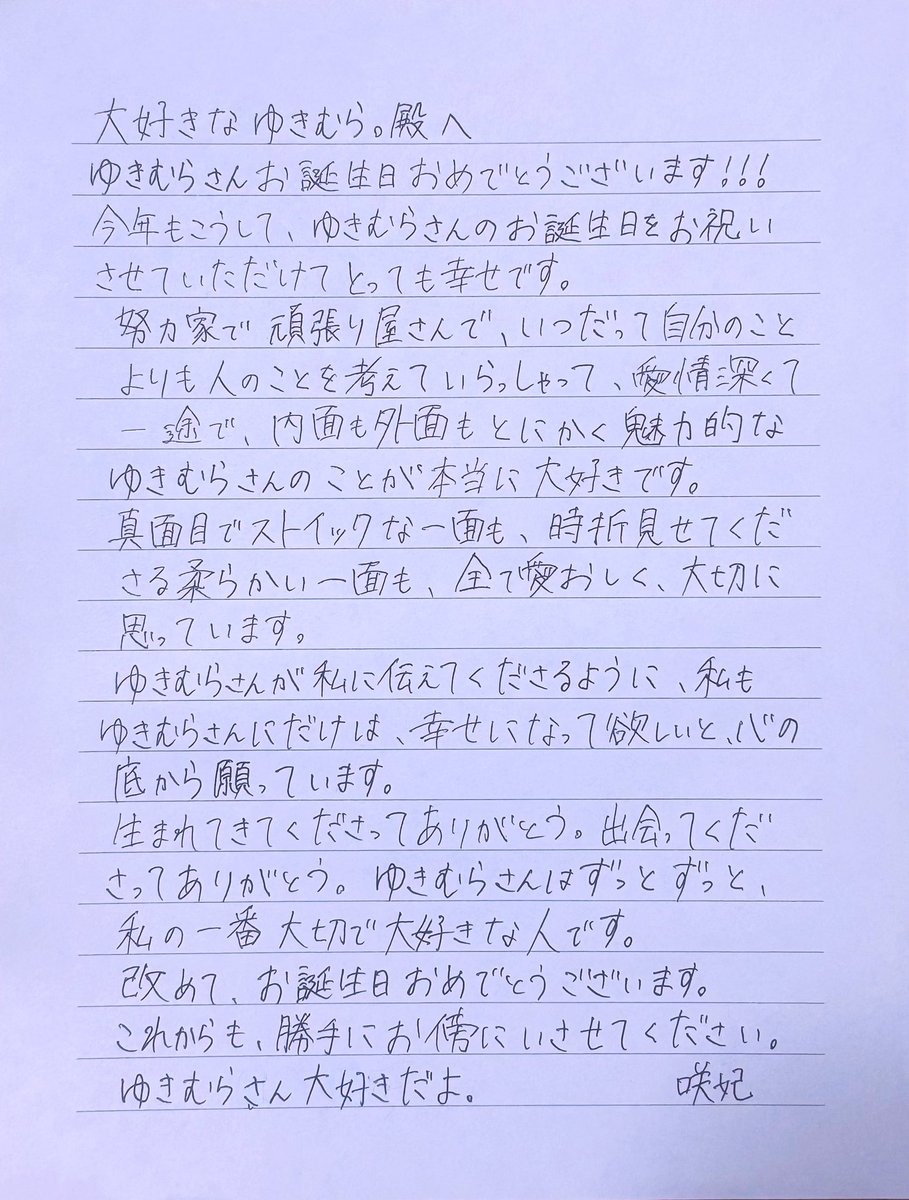 大好きなゆきむら。殿へ
ゆきむらさんお誕生日おめでとうございます!!!
今年もこうして、ゆきむらさんのお誕生日をお祝い
させていただけてとっても幸せです。
努力家で頑張り屋さんで、いつだって自分のこと
よりも人のことを考えていらっしゃって、愛情深くて
一途で、内面も外面もとにかく魅力的な
ゆきむらさんのことが本当に大好きです。
真面目でストイックな一面も、時折見せてくだ
さる柔らかい一面も、全て愛おしく、大切に
思っています。
ゆきむらさんが私に伝えてくださるように、私も
ゆきむらさんにだけは、幸せになって欲しいと、心の
底から願っています。
生まれてきてくださってありがとう。出会ってくだ
さってありがとう。ゆきむらさんはずっとずっと、
私の一番大切で大好きな人です。
改めて、お誕生日おめでとうございます。
これからも、勝手にお傍にいさせてください。
ゆきむらさん大好きだよ。 咲妃